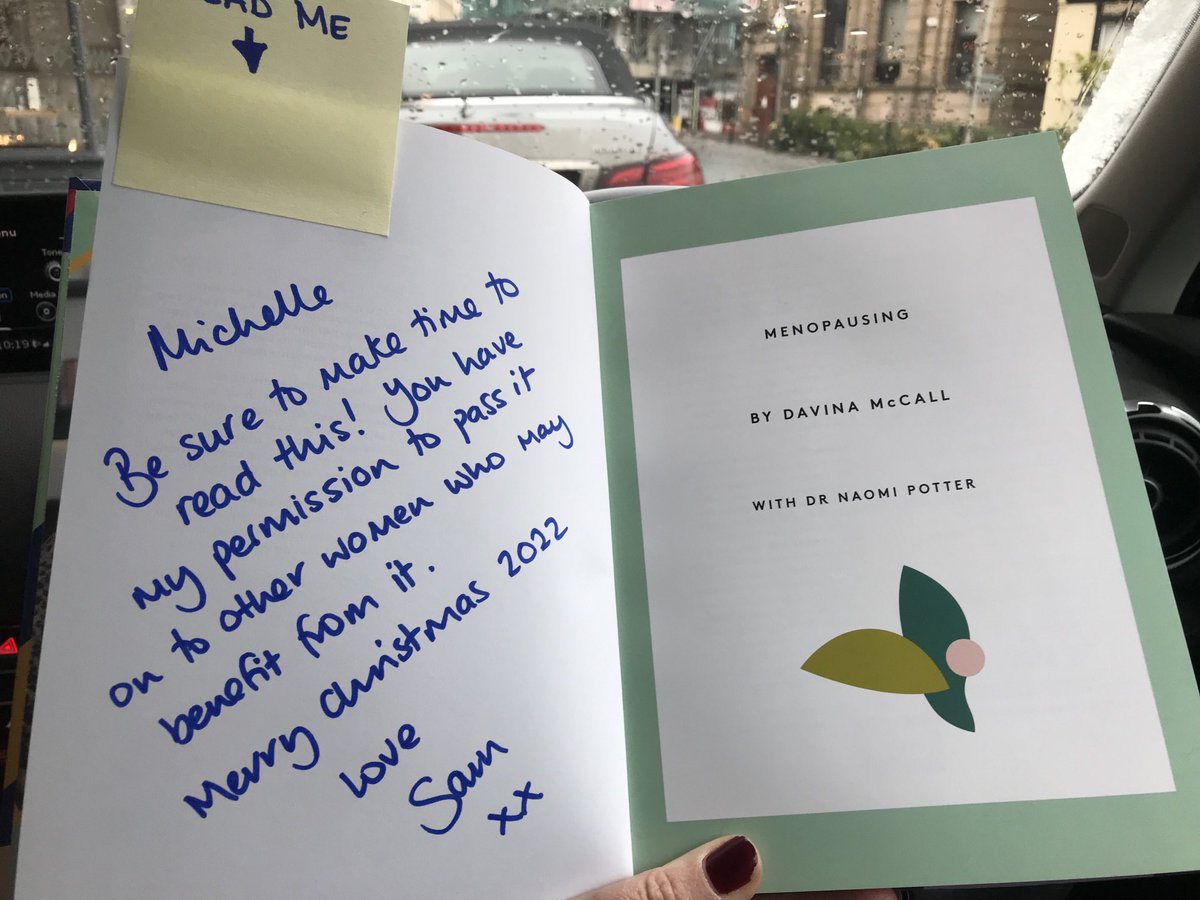 ME
Michelle
Be sure to make time to
read this! You have
my permission to pass it
on to other women who may
benefit from it.
Merry Christmas 2022
Love
Sam
xx
MENOPAUSING
BY DAVINA McCALL
WITH DR NAOMI POTTER
Tone
Media
10:19